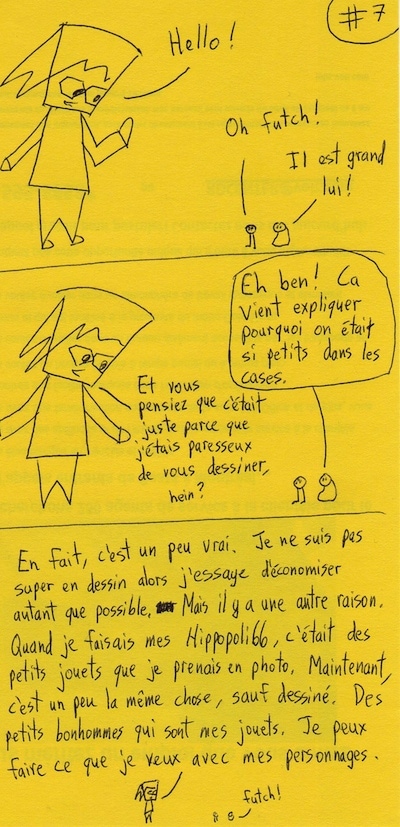 #7
Hello!
Oh futch!
Il est grand
lui!
Eh ben! Ca
vient expliquer
pourquoi on était
si petits dans les
cases.
Et vous
pensiez que c'était
juste parce que
j'étais paresseux
de vous dessiner,
hein?
En fait, c'est un peu vrai. Je ne suis pas
super en dessin alors j'essaye d'économiser
autant que possible. Mais il y a une autre raison.
Quand je faisais mes Hippopoli66, c'était des
petits jouets que je prenais en photo. Maintenant,
c'est un peu la même chose, sauf dessiné. Des
petits bonhommes qui sont mes jouets. Je peux
faire ce que je veux avec mes personnages.
futch!